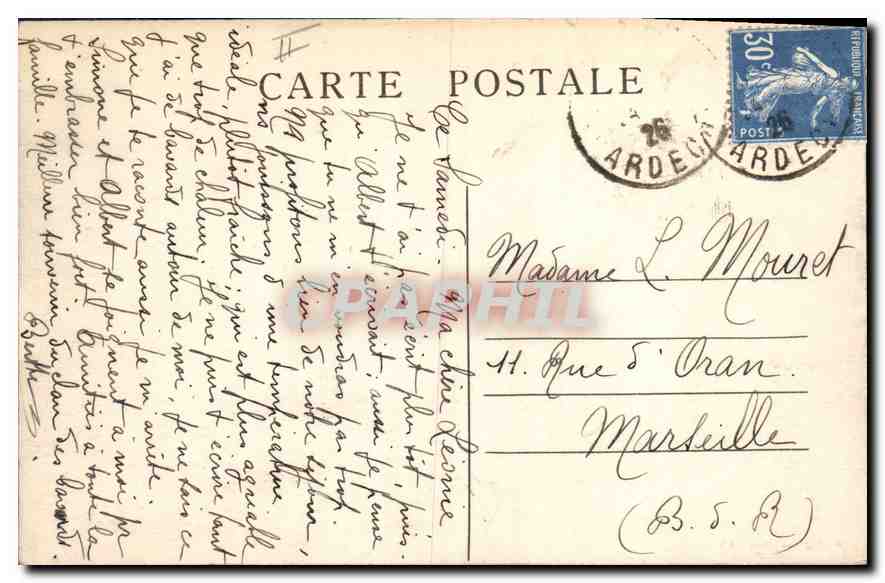 CARTE POSTALE
Ce Samedi. Ma chère Léonie
Je ne t'ai pas écrit plus tôt, puis-
qu'Albert t'écrivait, aussi je pense
que tu ne m'en voudras pas trop.
Ns profitons bien de notre séjour,
ns jouissons d'une température
idéale, plutôt fraîche, qui est plus agréable
que trop de chaleur. Je ne puis t'écrire tant
j'ai de bavards autour de moi, je ne sais ce
que je te raconte aussi je m'arrête.
Simone et Albert se joignent à moi pr
t'embrasser bien fort. Amitiés à toute la
famille. Meilleur souvenir du clan des bavards.
Berthe
II
REPUBLIQUE FRANCAISE
30c
POSTES
26
ARDECHE
26
ARDECHE
Madame L. Mouret
11. Rue d'Oran.
Marseille
(B. d. R)
CPAPHIL